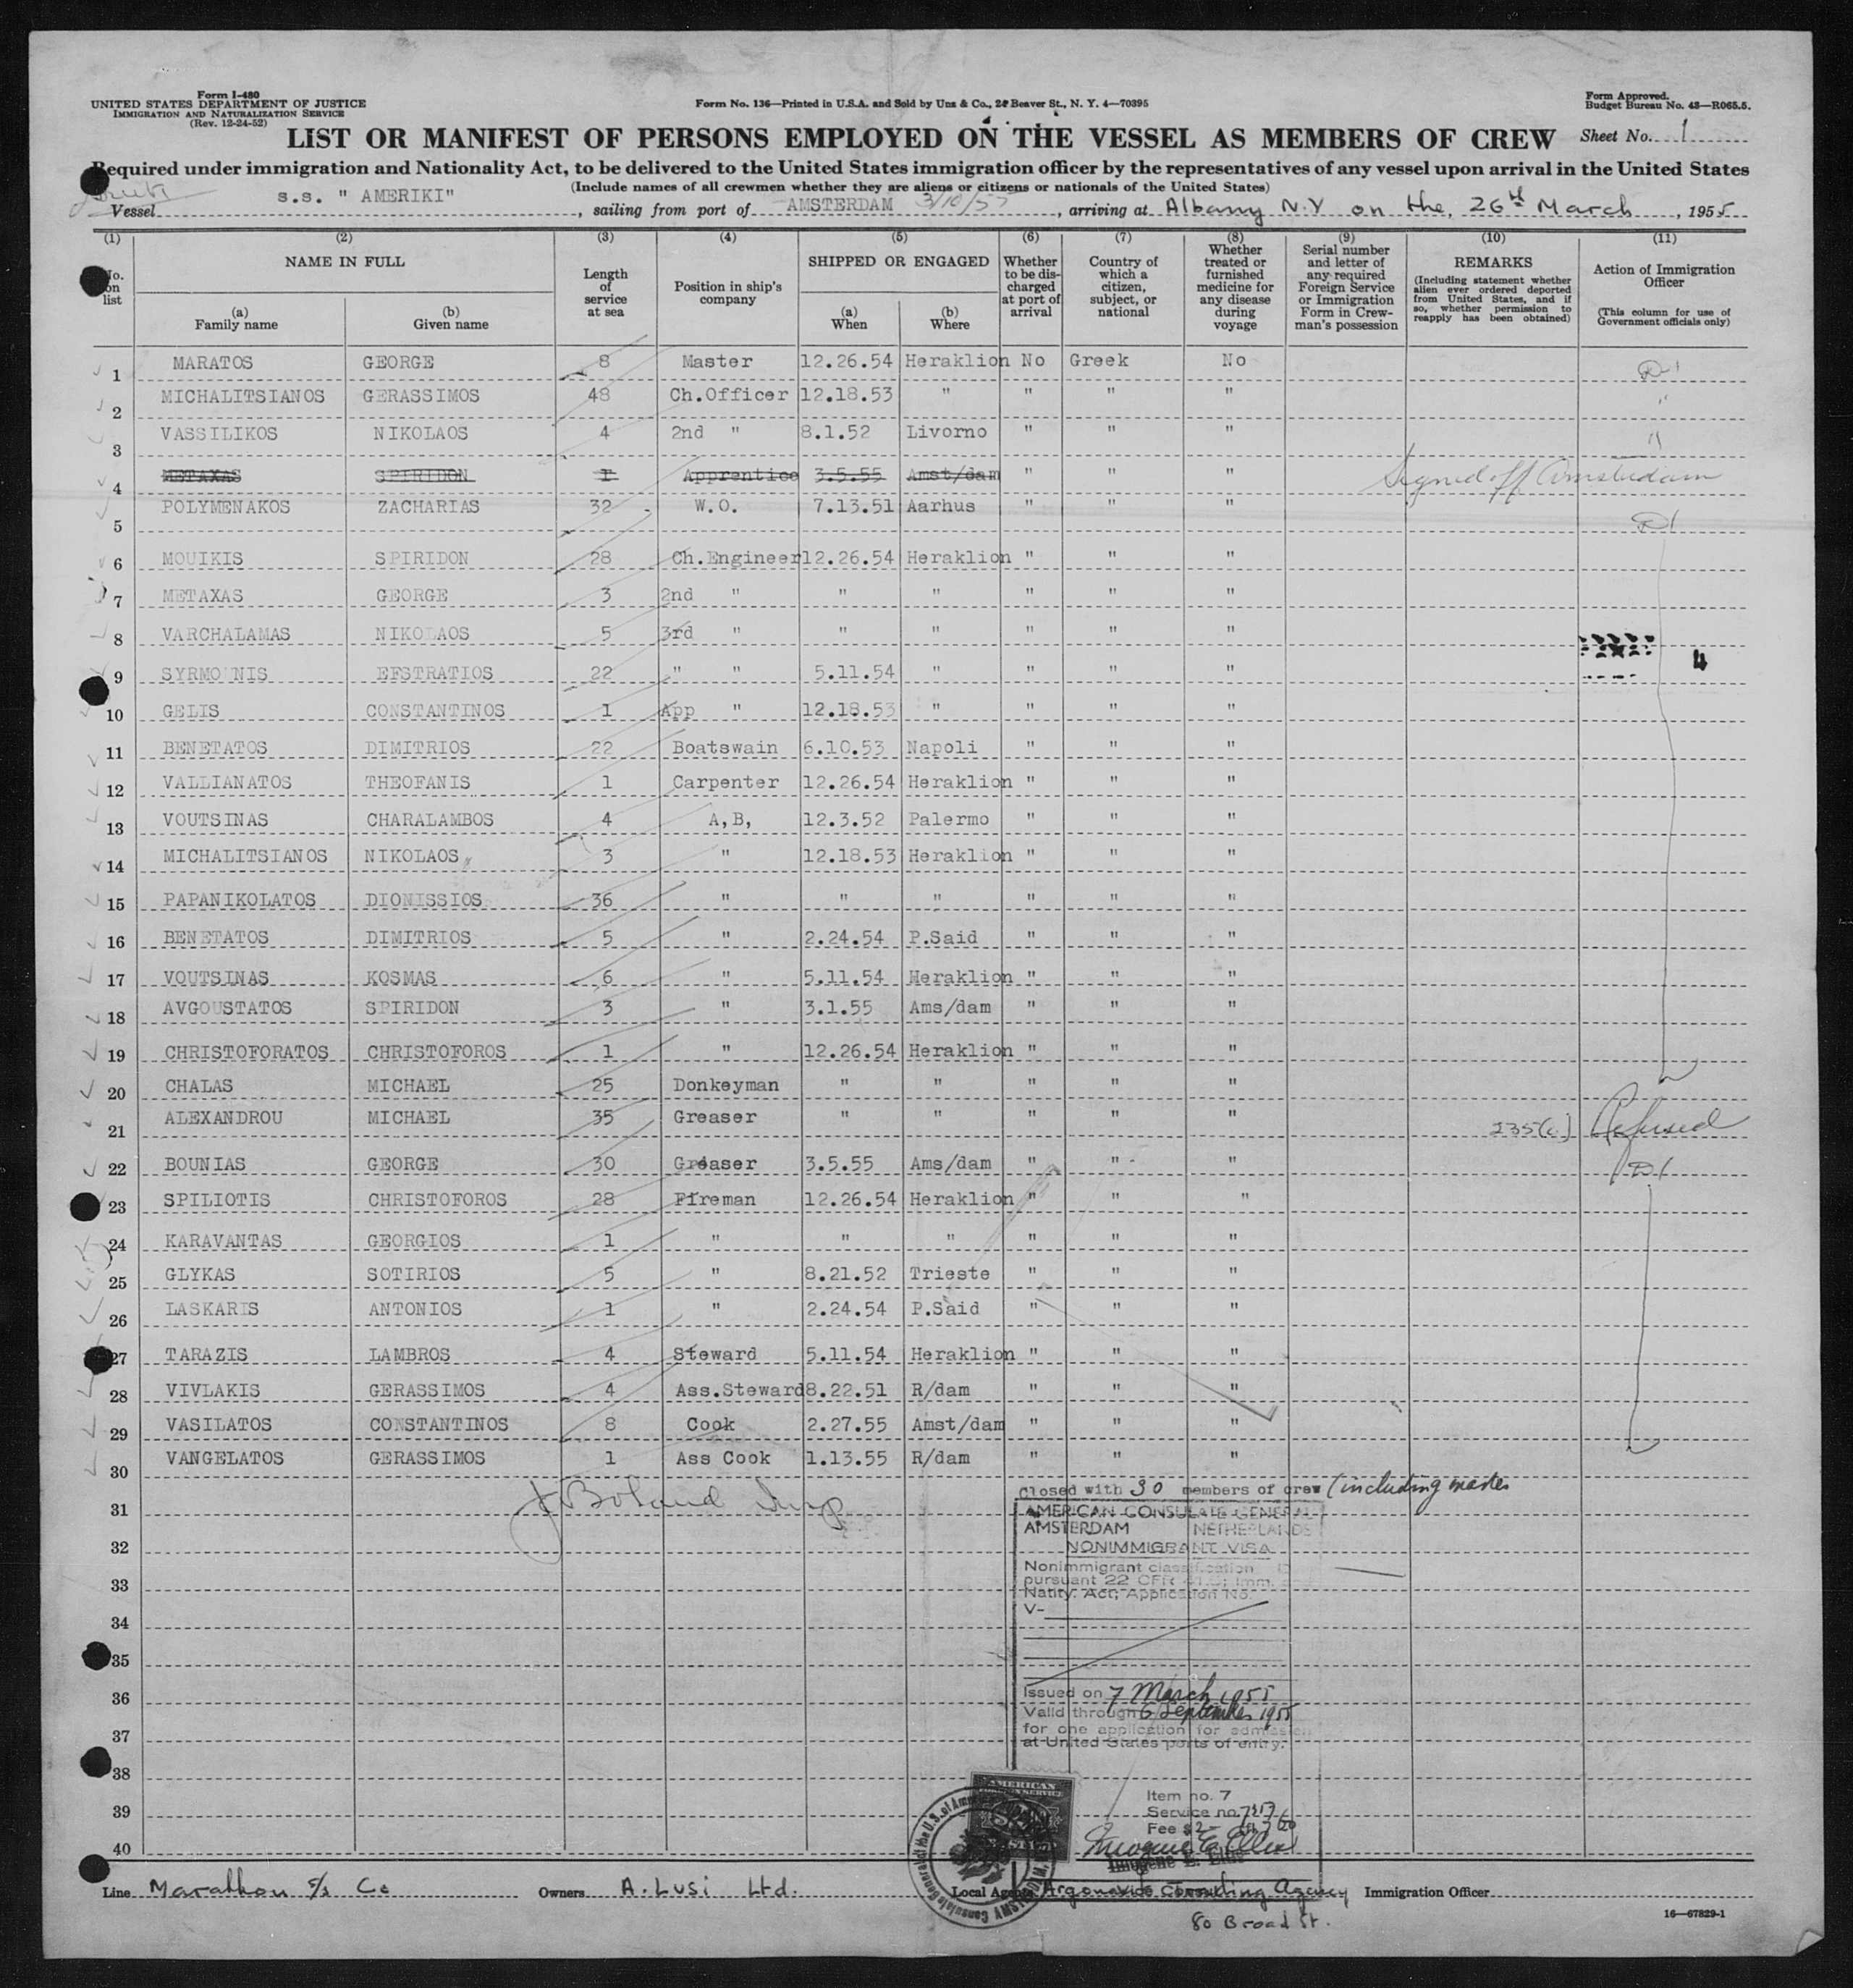 Form I-480
UNITED STATES DEPARTMENT OF JUSTICE
IMMIGRATION AND NATURALIZATION SERVICE
(Rev. 12-24-52)
Form No. 136—Printed in U.S.A. and Sold by Unz & Co., 24 Beaver St., N. Y. 4—70395
Form Approved.
Budget Bureau No. 43—R065.5.
LIST OR MANIFEST OF PERSONS EMPLOYED ON THE VESSEL AS MEMBERS OF CREW
Sheet No. 1
Required under immigration and Nationality Act, to be delivered to the United States immigration officer by the representatives of any vessel upon arrival in the United States
(Include names of all crewmen whether they are aliens or citizens or nationals of the United States)
Vessel s.s. " AMERIKI" , sailing from port of AMSTERDAM 3/10/55 , arriving at Albany N.Y on the, 26th March , 1955
(1) (2) (3) (4) (5) (6) (7) (8) (9) (10) (11)
No. on list
NAME IN FULL
(a) Family name
(b) Given name
Length of service at sea
Position in ship's company
SHIPPED OR ENGAGED
(a) When
(b) Where
Whether to be discharged at port of arrival
Country of which a citizen, subject, or national
Whether treated or furnished medicine for any disease during voyage
Serial number and letter of any required Foreign Service or Immigration Form in Crewman's possession
REMARKS
(Including statement whether alien ever ordered deported from United States, and if so, whether permission to reapply has been obtained)
Action of Immigration Officer
(This column for use of Government officials only)
1 MARATOS GEORGE 8 Master 12.26.54 Heraklion No Greek No D1
2 MICHALITSIANOS GERASSIMOS 48 Ch.Officer 12.18.53 " " " " "
3 VASSILIKOS NIKOLAOS 4 2nd " 8.1.52 Livorno " " " "
4 METAXAS SPIRIDON 1 Apprentice 3.5.55 Amst/dam " " " Signed off Amsterdam
5 POLYMENAKOS ZACHARIAS 32 W.O. 7.13.51 Aarhus " " " D1
6 MOUIKIS SPIRIDON 28 Ch.Engineer 12.26.54 Heraklion " " "
7 METAXAS GEORGE 3 2nd " " " " " "
8 VARCHALAMAS NIKOLAOS 5 3rd " " " " " "
9 SYRMOUNIS EFSTRATIOS 22 " " 5.11.54 " " " " 4
10 GELIS CONSTANTINOS 1 App " 12.18.53 " " " "
11 BENETATOS DIMITRIOS 22 Boatswain 6.10.53 Napoli " " "
12 VALLIANATOS THEOFANIS 1 Carpenter 12.26.54 Heraklion " " "
13 VOUTSINAS CHARALAMBOS 4 A,B, 12.3.52 Palermo " " "
14 MICHALITSIANOS NIKOLAOS 3 " 12.18.53 Heraklion " " "
15 PAPANIKOLATOS DIONISSIOS 36 " " " " " "
16 BENETATOS DIMITRIOS 5 " 2.24.54 P.Said " " "
17 VOUTSINAS KOSMAS 6 " 5.11.54 Heraklion " " "
18 AVGOUSTATOS SPIRIDON 3 " 3.1.55 Ams/dam " " "
19 CHRISTOFORATOS CHRISTOFOROS 1 " 12.26.54 Heraklion " " "
20 CHALAS MICHAEL 25 Donkeyman " " " " "
21 ALEXANDROU MICHAEL 35 Greaser " " " " " Refused
22 BOUNIAS GEORGE 30 Greaser 3.5.55 Ams/dam " " " D1
23 SPILIOTIS CHRISTOFOROS 28 Fireman 12.26.54 Heraklion " " "
24 KARAVANTAS GEORGIOS 1 " " " " " "
25 GLYKAS SOTIRIOS 5 " 8.21.52 Trieste " " "
26 LASKARIS ANTONIOS 1 " 2.24.54 P.Said " " "
27 TARAZIS LAMBROS 4 Steward 5.11.54 Heraklion " " "
28 VIVLAKIS GERASSIMOS 4 Ass.Steward 8.22.51 R/dam " " "
29 VASILATOS CONSTANTINOS 8 Cook 2.27.55 Amst/dam " " "
30 VANGELATOS GERASSIMOS 1 Ass Cook 1.13.55 R/dam " " "
Closed with 30 members of crew (including master
31
AMERICAN CONSULATE GENERAL
AMSTERDAM NETHERLANDS
32
NONIMMIGRANT VISA
Nonimmigrant classification
33
pursuant 22 CFR Imm.
Natity. Act; Application No.
V-
34
35
36
Issued on 7 March 1955
Valid through 6 September 1955
37
for one application for admission
at United States ports of entry.
38
AMERICAN
FOREIGN SERVICE
Item no. 7
39
Service no.
Fee $2-
40
Imogene E. Ellis
Imogene E. Ellis
Line Marathon S/s Co Owners A. Lusi Ltd. Local Agents Argonauts Consulting Agency Immigration Officer
80 Broad St.
16—67829-1